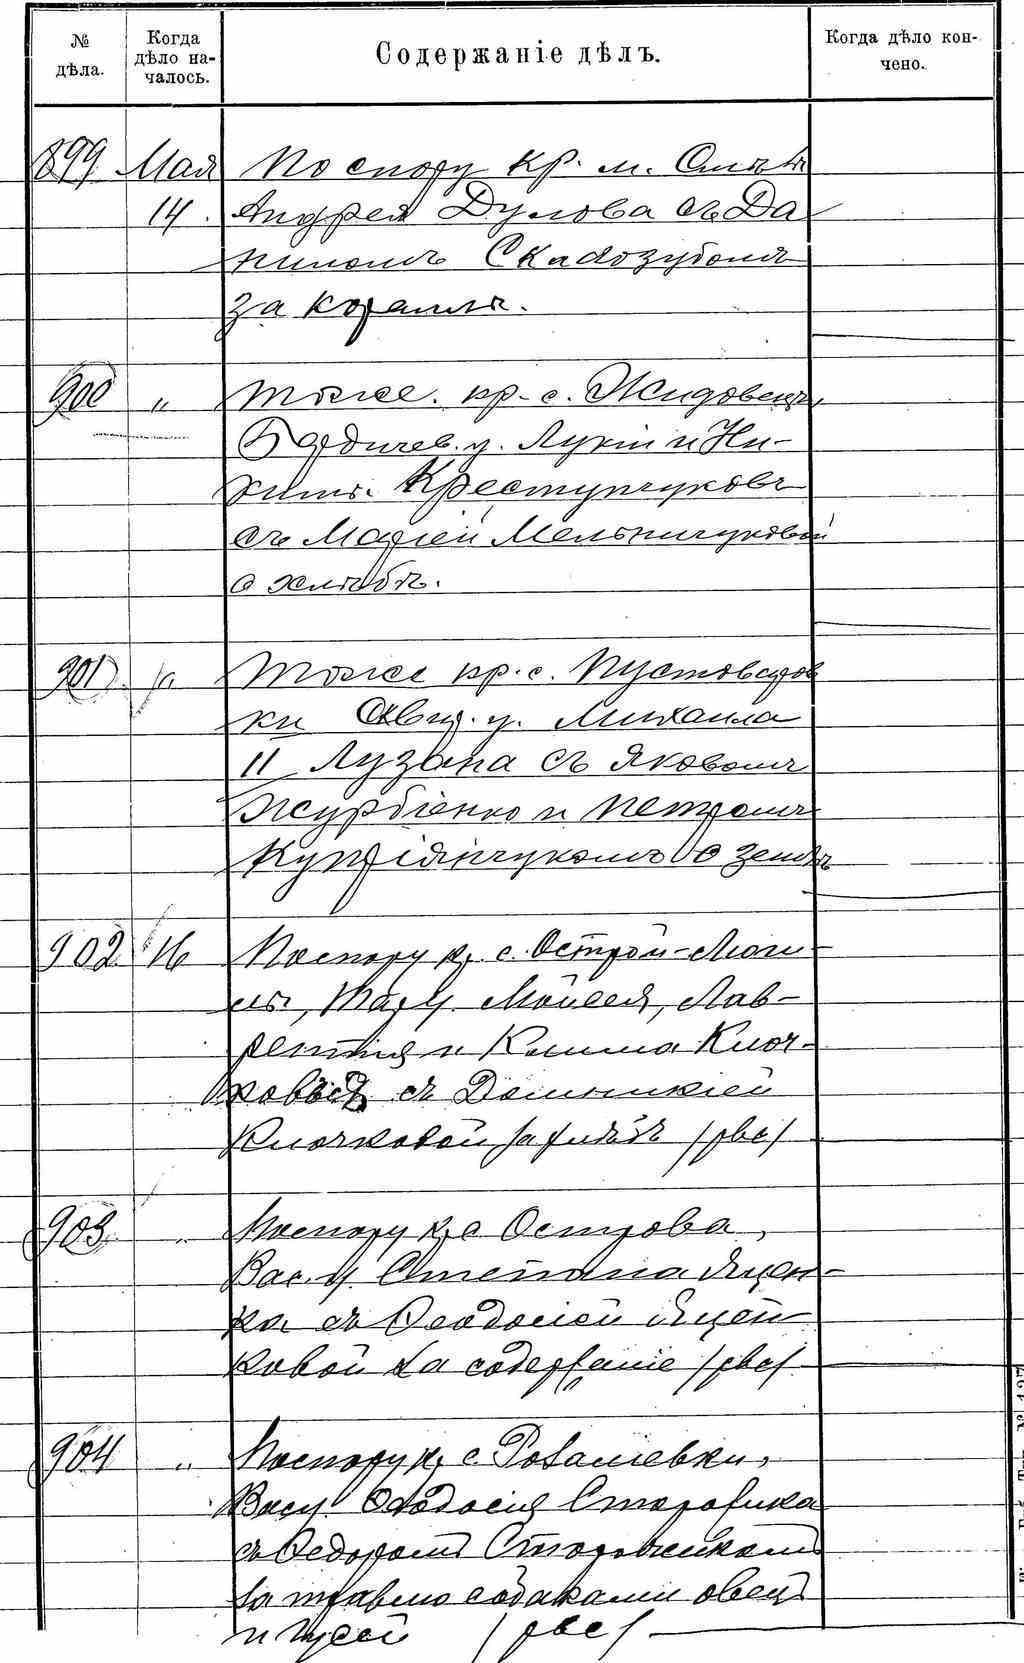 № дѣла.
Когда дѣло началось.
Содержаніе дѣлъ.
Когда дѣло кончено.
899 Мая По спору кр. м.
14. Андрея Дулова съ Да
ниломъ Скалозубомъ
за кораллы.
900 „ Тоже. кр. с. Жидовецъ,
Бердичев. у. Лукіи и Ни-
киты Крестунчуковъ
съ Маріей Мельничуковой
о хлѣбѣ.
901 „ Тоже кр. с. Пустоваров
ки Сквир. у. Михаила
Лузана съ Яковомъ
Журбіенко и Петромъ
Купріянчукомъ о землѣ
902 16 По спору кр. с. Острой-Моги-
лы, Тар. у. Моисея, Лав-
рентія и Клима Клоч-
ковыхъ съ Домникіей
Клочковой за хлѣбъ
903 „ По спору кр. с Острова,
Вас. у. Степана Яцен-
ка съ Феодосіей Яцен
ковой за содержаніе
904 „ По спору кр. с. Ровалевки,
Вас. у. Феодосія Сторожика
съ Федоромъ Сторожикомъ
за травлю собаками овецъ
и гусей